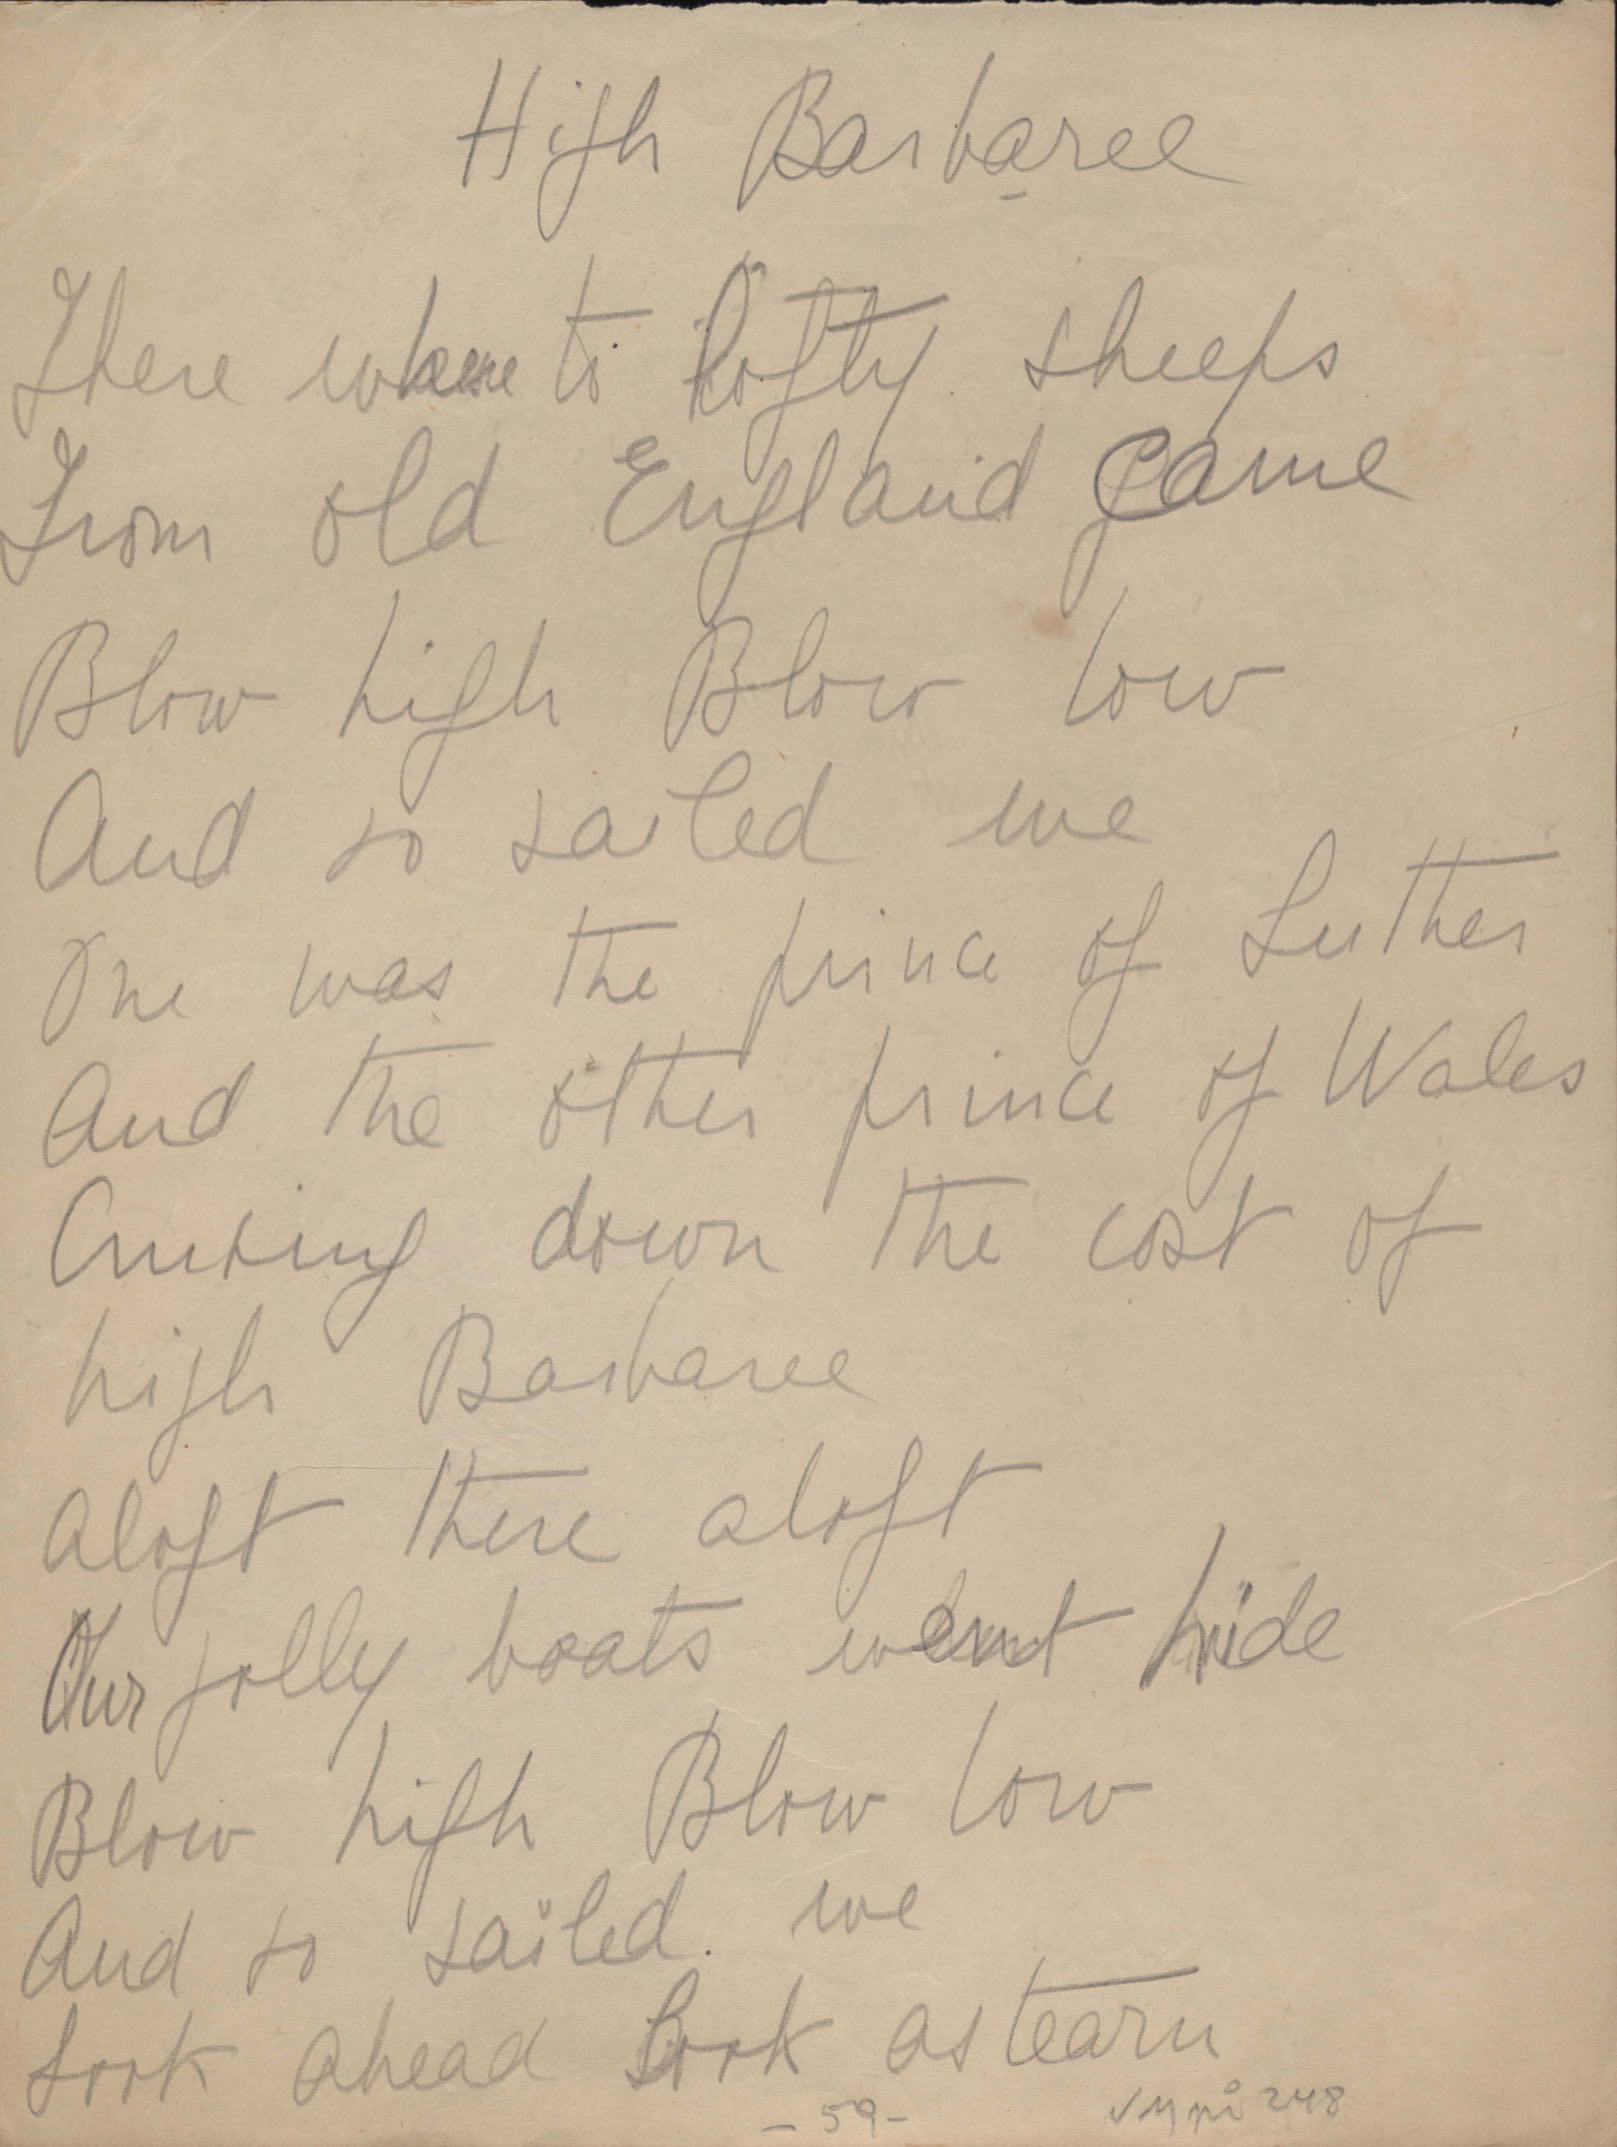 High Barbaree
There where to lofty sheeps
From old England came
Blow high Blow low
And so sailed we
One was the prince of Luther
And the other prince of Wales
Cruising down the cost of
high Barbaree
aloft there aloft
Our jolly boats went hide
Blow high Blow low
And so sailed we
Look ahead Look astearn
- 59 -
248